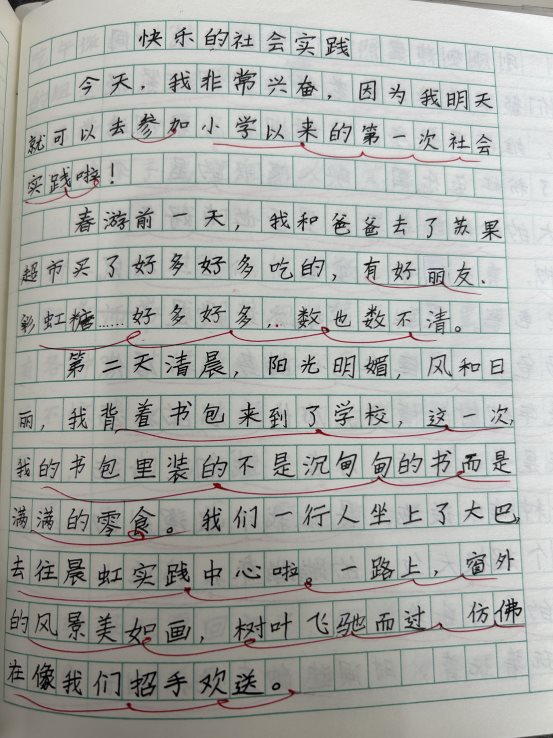 快乐的社会实践
今天，我非常兴奋，因为我明天
就可以去参加小学以来的第一次社会
实践啦！
春游前一天，我和爸爸去了苏果
超市买了好多好多吃的，有好丽友、
彩虹糖……好多好多…数也数不清。
第二天清晨，阳光明媚，风和日
丽，我背着书包来到了学校，这一次，
我的书包里装的不是沉甸甸的书而是
满满的零食。我们一行人坐上了大巴，
去往晨虹实践中心啦。一路上，窗外
的风景美如画，树叶飞驰而过，仿佛
在像我们招手欢送。